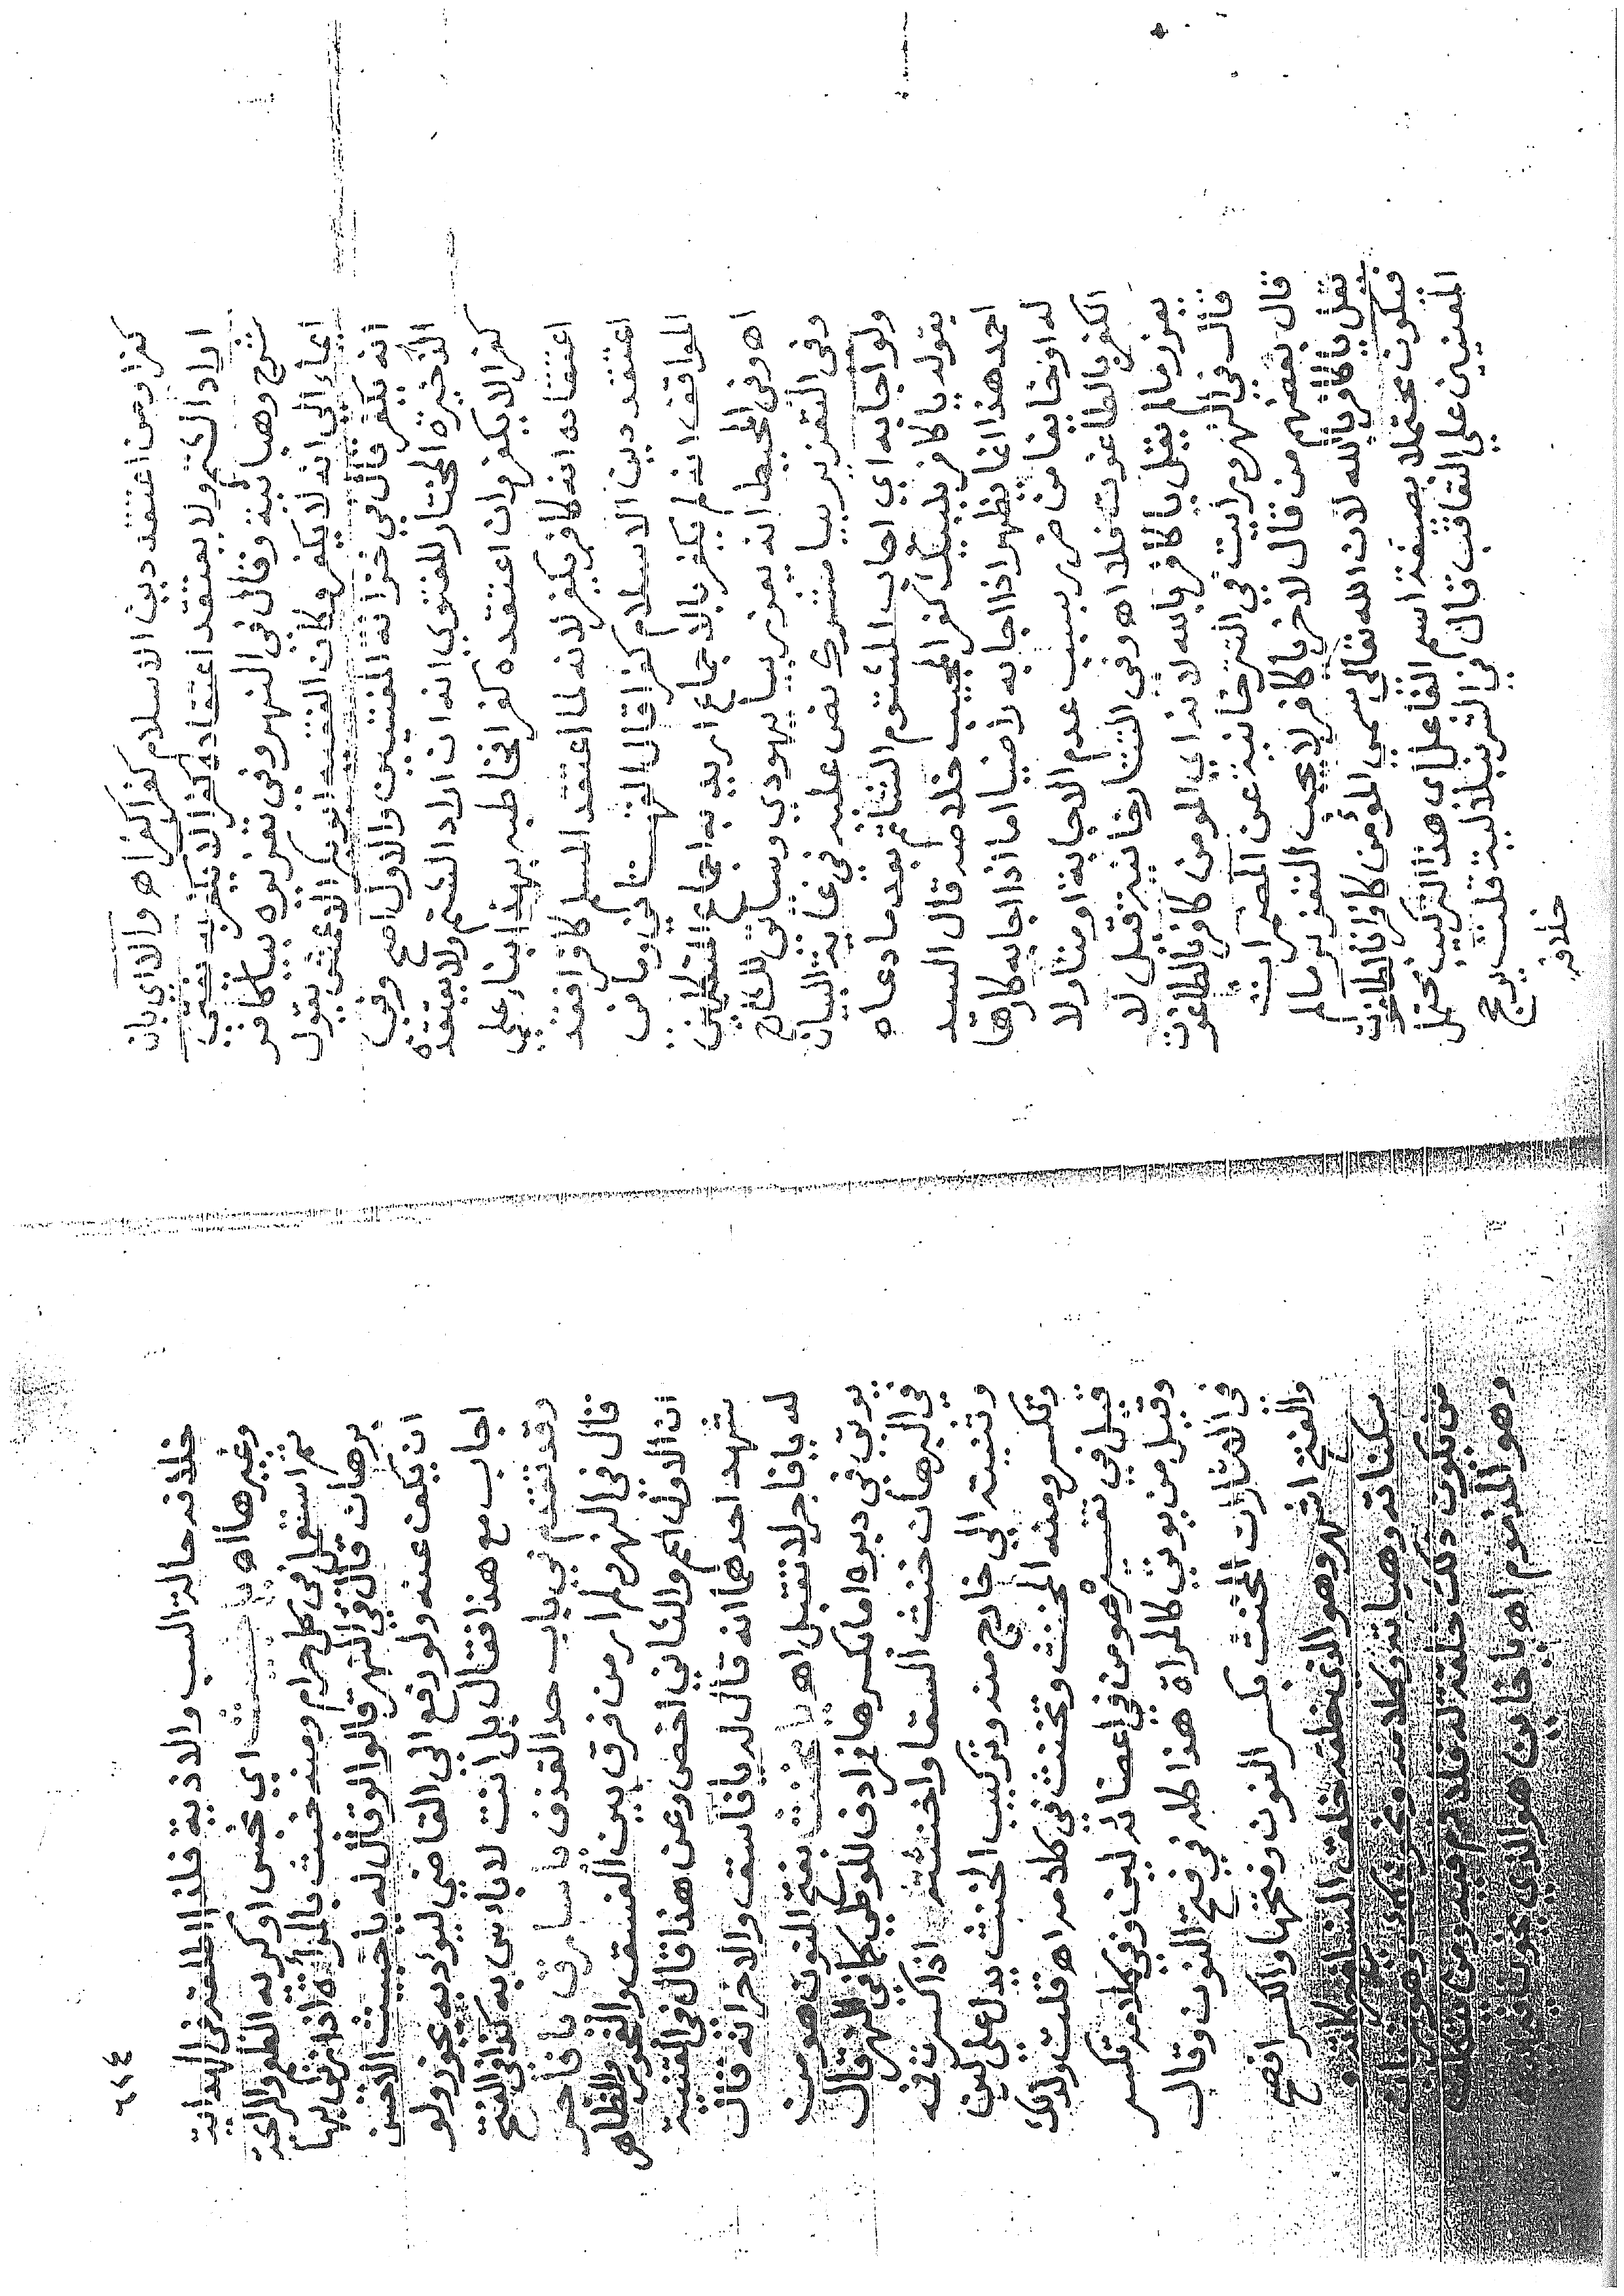 كفرا ومن اعتقد دين الاسلام كفرا كفر اه والاذي بان
اراد الشتم ولا يعتقد اعتقاده كفرا لا نكفر به نفتي
شرح وهبانية وقال في النهر وفي تعزيره بياكافر
ايماء الي انه لا يكفر وكان الفقيه ابو بكر الاعمش يقول
انه يكفر قال في خزانة المفتيين والاول اصح وفي
الذخيرة المختار للفتوي انه ان اراد الشتم ولا يعتقده
كفرا لا يكفر وان اعتقده كفرا فخاطبه بهذا بناء علي
اعتقاده انه كافر يكفر لانه لما اعتقد المسلم كافرا فقد
اعتقد دين الاسلام كفرا قال القهستاني وما في
المواقف انه لم يكفر بالاجماع اريد به اجماع المتكلمين
اه وفي المحيط انه يعزر بيا يهودي وساق
وفي التعزير بيا مشرك نص عليه في غاية البيان
ولو اجابه اي اجاب المشتوم الشاتم بعد ما دعاه
بقوله يا كافر بلبيك كفر المجيب خلاصه قال السيد
احمد هذا انما يظهر اذا اجابه راضيا اما اذا اجابه كارها
له او خايفا من ضرر بسبب عدم الاجابة او
الكفر بالطاغوت فلا اه وفي التتارخانيه قيل لا
يعزر ما لم يقل يا كافر بالله لانه اي المومن كافر بالطاغوت
قال في النهر ورايت في التترخانية عن المضمرات
قال بعضهم من قال لاخر يا كافر لا يجب التعزير ما لم
يقل يا كافر بالله لان الله تعالي سمي المؤمن كافرا بالطاغوت
فيكون محتملا بصيغة اسم الفاعل اي هذا التركيب يحتمل
المعنيين علي التعاقب قال في الشرنبلالية قلت يرجح
خلافه
خلافه حالة السب والاذية فلذا اطلقه في الهداية
وغيرها اه يا خبيث اي نجس او كريه الطعم والرايحة
ثم استعمل في كل حرام ومنه خبث بالمرأة اذا زني بها
برهان قال في النهر قالوا لو قال له يا خبيث الاحسن
ان يكف عنه ولو رفع الي القاضي ليودبه يجوز ولو
اجاب مع هذا فقال بل انت لا باس به كذا في الفتح
وقد تقدم في باب حد القذف يا سارق يا فاجر
قال في النهر ولم ار من فرق بين الفسق والفجور والظاهر
ان الاول اعم والثاني اخص وعن هذا قال في القنية
شهد احدهما انه قال له يا فاسق والاخر انه قال
له يا فاجر لا تقبل اه يا مخنث بفتح النون هو من
يوتي في دبره اما بكسرها فمرادف للوطي كما في النهر قال
في البرهان خنث السقا واخنثتم اذا كسرت فمه
وثنيته الي خارج منه وتركيب الخنث يدل علي لين
وتكسر ومنه المخنث وتخنث في كلامه اه قلت ولذلك
قيل في تفسيره هو من في اعضائه لين وفي كلامه تكسر
وقيل من يوتي كالمراة هذا كله في فتح النون وقال
في العثارات المخنث بكسر النون وفتحها والكسر افصح
والفتح اشهر وهو الذي خلقه خلقت النسا في حركاته و
سكناته وهيأته وكلامه
من يكون ذلك خلقة له فلا ذم فيه ومن
وهو المذموم اه يا خاين هو الذي يخون فيما
٢١٤